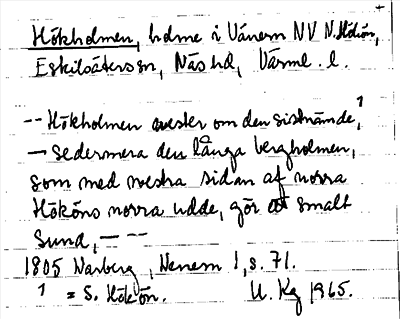 Hökholmen, holme i Vänern NV N. Hökön,
Eskilsäters sn, Näs hd, Värml. l.
-- Hökholmen vester om den sistnämde,¹
— sedermera den långa bergholmen,
som med vestra sidan af norra
Hököns norra udde, gör ett smalt
sund, — --
1805 Warberg, Wenern 1, s. 71.
¹ = S. Hökön. U. Kg 1965.